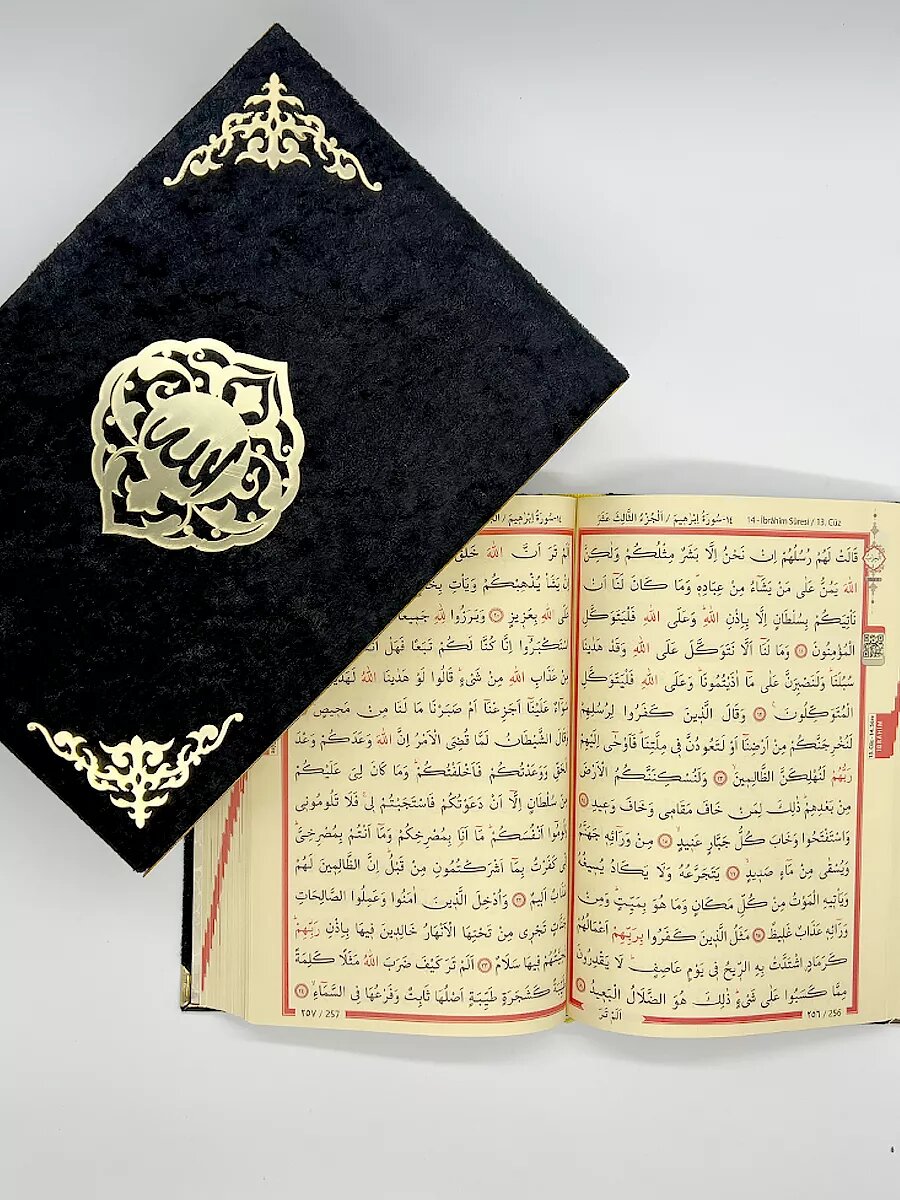 ١٤-سُورَةُ اِبْرٰهِيمَ / اَلْجُزْءُ الثَّالِثَ عَشَرَ 14 - İbrâhîm Sûresi / 13. Cüz
قَالَتْ لَهُمْ رُسُلُهُمْ اِنْ نَحْنُ اِلَّا بَشَرٌ مِثْلُكُمْ وَلٰكِنَّ
اللّٰهَ يَمُنُّ عَلٰى مَنْ يَشَٓاءُ مِنْ عِبَادِه۪ۜ وَمَا كَانَ لَنَٓا اَنْ
نَأْتِيَكُمْ بِسُلْطَانٍ اِلَّا بِاِذْنِ اللّٰهِۜ وَعَلَى اللّٰهِ فَلْيَتَوَكَّلِ
الْمُؤْمِنُونَ ﴿١١﴾ وَمَا لَنَٓا اَلَّا نَتَوَكَّلَ عَلَى اللّٰهِ وَقَدْ هَدٰينَا
سُبُلَنَاۜ وَلَنَصْبِرَنَّ عَلٰى مَٓا اٰذَيْتُمُونَاۜ وَعَلَى اللّٰهِ فَلْيَتَوَكَّلِ
الْمُتَوَكِّلُونَ۟ ﴿١٢﴾ وَقَالَ الَّذ۪ينَ كَفَرُوا لِرُسُلِهِمْ
لَنُخْرِجَنَّكُمْ مِنْ اَرْضِنَٓا اَوْ لَتَعُودُنَّ ف۪ي مِلَّتِنَاۜ فَاَوْحٰٓى اِلَيْهِمْ
رَبُّهُمْ لَنُهْلِكَنَّ الظَّالِم۪ينَۙ ﴿١٣﴾ وَلَنُسْكِنَنَّكُمُ الْاَرْضَ
مِنْ بَعْدِهِمْۜ ذٰلِكَ لِمَنْ خَافَ مَقَام۪ي وَخَافَ وَع۪يدِ ﴿١٤﴾
وَاسْتَفْتَحُوا وَخَابَ كُلُّ جَبَّارٍ عَن۪يدٍۙ ﴿١٥﴾ مِنْ وَرَٓائِه۪ جَهَنَّمُ
وَيُسْقٰى مِنْ مَٓاءٍ صَد۪يدٍۙ ﴿١٦﴾ يَتَجَرَّعُهُ وَلَا يَكَادُ يُس۪يغُهُ
وَيَأْت۪يهِ الْمَوْتُ مِنْ كُلِّ مَكَانٍ وَمَا هُوَ بِمَيِّتٍۜ وَمِنْ
وَرَٓائِه۪ عَذَابٌ غَل۪يظٌ ﴿١٧﴾ مَثَلُ الَّذ۪ينَ كَفَرُوا بِرَبِّهِمْ اَعْمَالُهُمْ
كَرَمَادٍۨ اشْتَدَّتْ بِهِ الرّ۪يحُ ف۪ي يَوْمٍ عَاصِفٍۜ لَا يَقْدِرُونَ
مِمَّا كَسَبُوا عَلٰى شَيْءٍۜ ذٰلِكَ هُوَ الضَّلَالُ الْبَع۪يدُ ﴿١٨﴾
اَلَمْ تَرَ
٢٥٦ / 256
İBRÂHÎM
١٤-سُورَةُ اِبْرٰه۪يمَ
اَلَمْ تَرَ اَنَّ اللّٰهَ خَلَقَ
اِنْ يَشَأْ يُذْهِبْكُمْ وَيَأْتِ
عَلَى اللّٰهِ بِعَز۪يزٍ ﴿٢٠﴾ وَبَرَزُوا لِلّٰهِ جَم۪يعًا
اسْتَكْبَرُٓوا اِنَّا كُنَّا لَكُمْ تَبَعًا فَهَلْ
مِنْ عَذَابِ اللّٰهِ مِنْ شَيْءٍۜ قَالُوا لَوْ هَدٰينَا اللّٰهُ
سَوَٓاءٌ عَلَيْنَٓا اَجَزِعْنَٓا اَمْ صَبَرْنَا مَا لَنَا مِنْ مَح۪يصٍ
وَقَالَ الشَّيْطَانُ لَمَّا قُضِيَ الْاَمْرُ اِنَّ اللّٰهَ وَعَدَكُمْ وَعْدَ
الْحَقِّ وَوَعَدْتُكُمْ فَاَخْلَفْتُكُمْۜ وَمَا كَانَ لِيَ عَلَيْكُمْ
مِنْ سُلْطَانٍ اِلَّٓا اَنْ دَعَوْتُكُمْ فَاسْتَجَبْتُمْ ل۪يۚ فَلَا تَلُومُون۪ي
وَلُومُٓوا اَنْفُسَكُمْۜ مَٓا اَنَا۬ بِمُصْرِخِكُمْ وَمَٓا اَنْتُمْ بِمُصْرِخِيَّۜ
اِنّ۪ي كَفَرْتُ بِمَٓا اَشْرَكْتُمُونِ مِنْ قَبْلُۜ اِنَّ الظَّالِم۪ينَ لَهُمْ
عَذَابٌ اَل۪يمٌ ﴿٢٢﴾ وَاُدْخِلَ الَّذ۪ينَ اٰمَنُوا وَعَمِلُوا الصَّالِحَاتِ
جَنَّاتٍ تَجْر۪ي مِنْ تَحْتِهَا الْاَنْهَارُ خَالِد۪ينَ ف۪يهَا بِاِذْنِ رَبِّهِمْۜ
تَحِيَّتُهُمْ ف۪يهَا سَلَامٌ ﴿٢٣﴾ اَلَمْ تَرَ كَيْفَ ضَرَبَ اللّٰهُ مَثَلًا كَلِمَةً
طَيِّبَةً كَشَجَرَةٍ طَيِّبَةٍ اَصْلُهَا ثَابِتٌ وَفَرْعُهَا فِي السَّمَٓاءِۙ ﴿٢٤﴾
٢٥٧ / 257